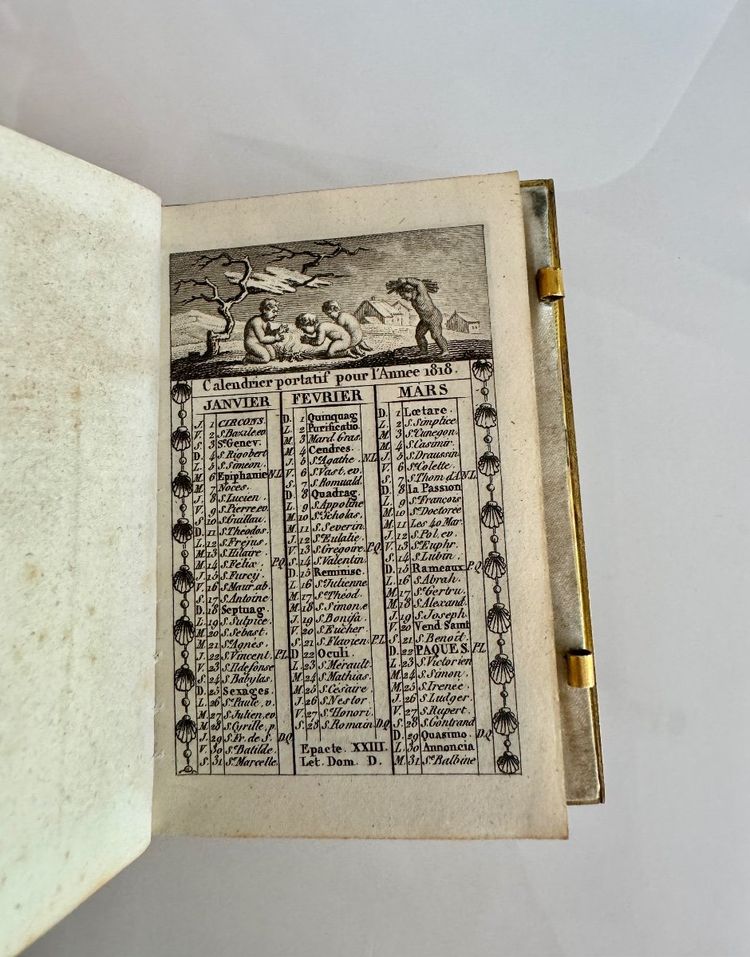 Calendrier portatif pour l'Annee 1818.
JANVIER
J. 1 CIRCONS.
V. 2 S. Bazile. ev.
S. 3 Ste Genev.
D. 4 S. Rigobert
L. 5 S. Simeon.
M. 6 Epiphanie N.L.
M. 7 Noces.
J. 8 S. Lucien.
V. 9 S. Pierre. ev.
S. 10 S. Guillau.
D. 11 S. Theodos.
L. 12 S. Frejus.
M. 13 S. Hilaire.
M. 14 S. Felix. P.Q.
J. 15 S. Furcy.
V. 16 S. Maur. ab.
S. 17 S. Antoine
D. 18 Septuag.
L. 19 S. Sulpice.
M. 20 S. Sebast.
M. 21 Ste Agnès.
J. 22 S. Vincent. P.L.
V. 23 S. Ildefonse
S. 24 S. Babylas.
D. 25 Sexages.
L. 26 Ste Paule. v.
M. 27 S. Julien. ev.
M. 28 S. Cyrille. p.
J. 29 S. Fr. de S. D.Q.
V. 30 Ste Batilde.
S. 31 Ste Marcelle.
FEVRIER
D. 1 Quinquag
L. 2 Purificatio.
M. 3 Mard. Gras.
M. 4 Cendres.
J. 5 Ste Agathe. N.L.
V. 6 S. Vast. ev.
S. 7 S. Romuald.
D. 8 Quadrag.
L. 9 S. Appoline
M. 10 Ste Scholas.
M. 11 S. Severin.
J. 12 Ste Eulalie.
V. 13 S. Gregoire. P.Q.
S. 14 S. Valentin.
D. 15 Reminisc.
L. 16 Ste Julienne
M. 17 S. Théod.
M. 18 S. Simon. e
J. 19 S. Bonifa.
V. 20 S. Eucher.
S. 21 S. Flavien. P.L.
D. 22 Oculi.
L. 23 S. Mérault.
M. 24 S. Mathias.
M. 25 S. Césaire.
J. 26 S. Nestor.
V. 27 S. Honori.
S. 28 S. Romain. D.Q.
Epacte. XXIII.
Let. Dom. D.
MARS
D. 1 Lœtare.
L. 2 S. Simplice
M. 3 Ste Cunegon.
M. 4 S. Casimir.
J. 5 S. Draussin
V. 6 Ste Colette.
S. 7 S. Thom. d'A N.L.
D. 8 la Passion
L. 9 S. François
M. 10 Ste Doctorée
M. 11 Les 40 Mar.
J. 12 S. Pol. ev.
V. 13 Ste Euphr.
S. 14 S. Lubin.
D. 15 Rameaux. P.Q.
L. 16 S. Abrah.
M. 17 Ste Gertru.
M. 18 S. Alexand.
J. 19 S. Joseph
V. 20 Vend. Saint
S. 21 S. Benoit.
D. 22 PAQUES. P.L.
L. 23 S. Victorien
M. 24 S. Simon.
M. 25 S. Irenée.
J. 26 S. Ludger.
V. 27 S. Rupert.
S. 28 S. Gontrand
D. 29 Quasimo. D.Q.
L. 30 Annoncia
M. 31 Ste Balbine